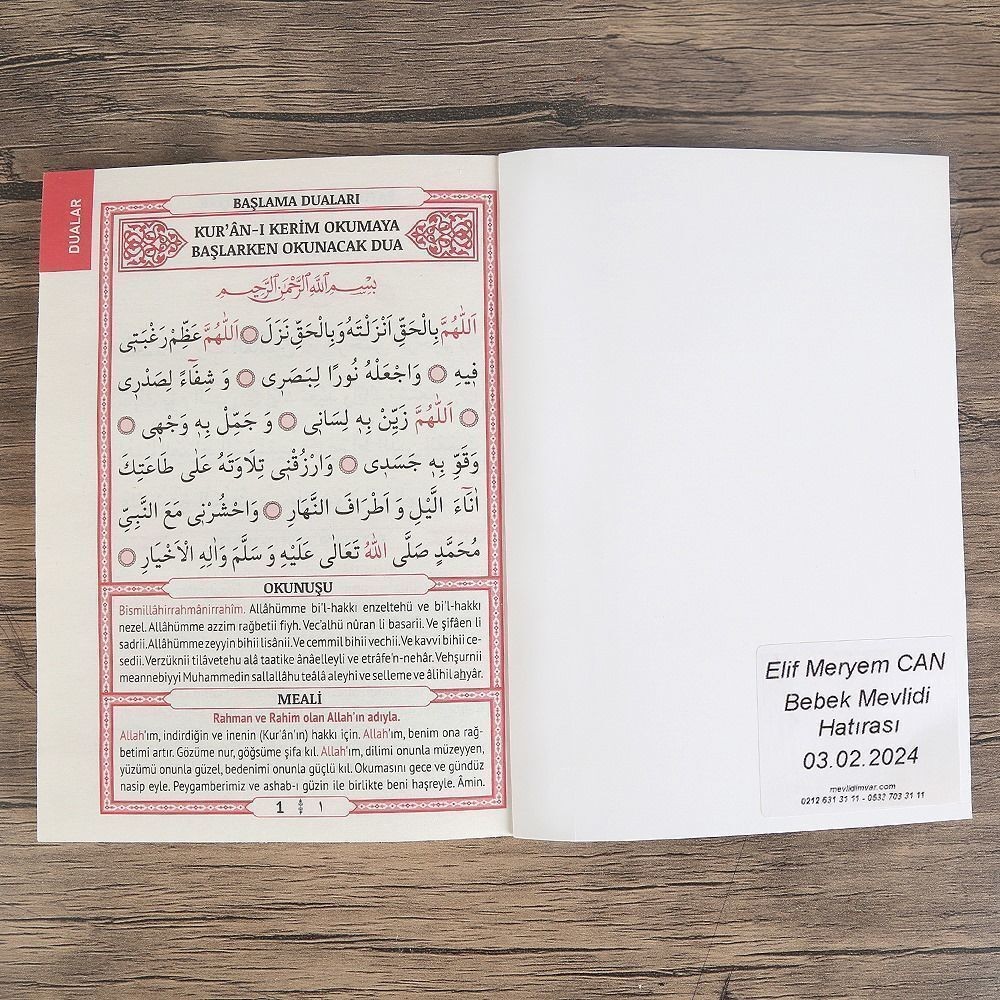 DUALAR
BAŞLAMA DUALARI
KUR’ÂN-I KERİM OKUMAYA
BAŞLARKEN OKUNACAK DUA
بِسْمِ اللّٰهِ الرَّحْمٰنِ الرَّحِيمِ
اَللّٰهُمَّ بِالْحَقِّ اَنْزَلْتَهُ وَبِالْحَقِّ نَزَلَ ۝ اَللّٰهُمَّ عَظِّمْ رَغْبَتٖى
فٖيهِ ۝ وَاجْعَلْهُ نُورًا لِبَصَرٖى ۝ وَ شِفَٓاءً لِصَدْرٖى
۝ اَللّٰهُمَّ زَيِّنْ بِهٖ لِسَانٖى ۝ وَ جَمِّلْ بِهٖ وَجْهٖى ۝
وَقَوِّ بِهٖ جَسَدٖى ۝ وَارْزُقْنٖى تِلَاوَتَهُ عَلٰى طَاعَتِكَ
اٰنَٓاءَ الَّيْلِ وَ اَطْرَافَ النَّهَارِ ۝ وَاحْشُرْنٖى مَعَ النَّبِيِّ
مُحَمَّدٍ صَلَّى اللّٰهُ تَعَالٰى عَلَيْهِ وَ سَلَّمَ وَاٰلِهِ الْاَخْيَارِ ۝
OKUNUŞU
Bismillâhirrahmânirrahîm. Allâhümme bi’l-hakkı enzeltehü ve bi’l-hakkı
nezel. Allâhümme azzim rağbetii fiyh. Vec’alhü nûran li basarii. Ve şifâen li
sadrii. Allâhümme zeyyin bihii lisânii. Ve cemmil bihii vechii. Ve kavvi bihii ce-
sedii. Verzüknii tilâvetehu alâ taatike ânâelleyli ve etrâfe’n-nehâr. Vehşurnii
meannebiyyi Muhammedin sallallâhu teâlâ aleyhi ve selleme ve âlihil ahyâr.
MEALİ
Rahman ve Rahim olan Allah’ın adıyla.
Allah’ım, indirdiğin ve inenin (Kur’ân’ın) hakkı için. Allah’ım, benim ona rağ-
betimi artır. Gözüme nur, göğsüme şifa kıl. Allah’ım, dilimi onunla müzeyyen,
yüzümü onunla güzel, bedenimi onunla güçlü kıl. Okumasını gece ve gündüz
nasip eyle. Peygamberimiz ve ashab-ı güzin ile birlikte beni haşreyle. Âmin.
1 ١
Elif Meryem CAN
Bebek Mevlidi
Hatırası
03.02.2024
mevlidimvar.com
0212 631 31 11 - 0532 703 31 11